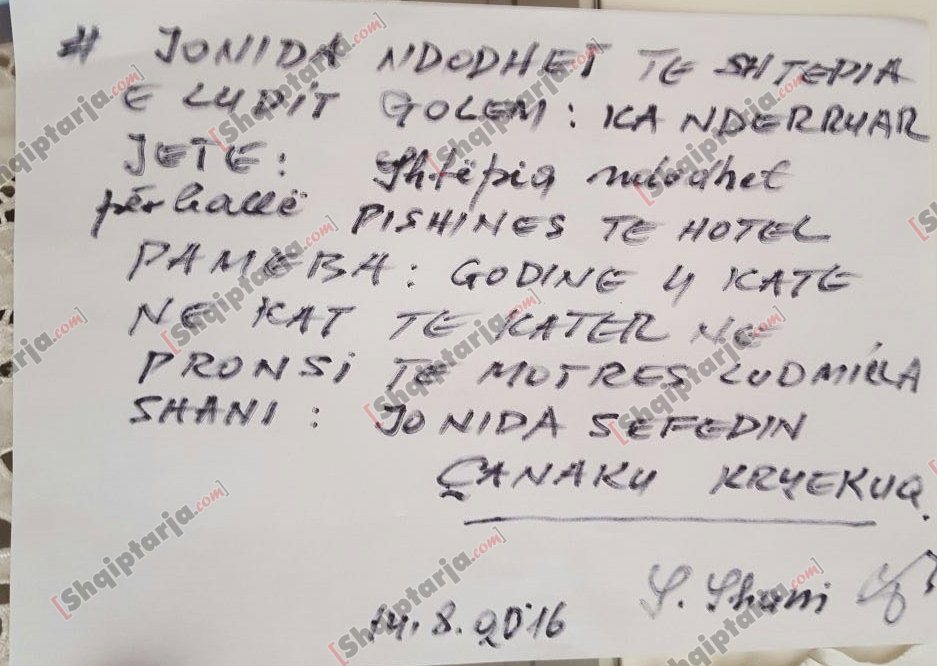 # JONIDA NDODHET TE SHTEPIA
E LUDIT GOLEM: KA NDERRUAR
JETE: Shtëpia ndodhet
përballë PISHINES TE HOTEL
PAMEBA: GODINE 4 KATE
NE KAT TE KATER NE
PRONSI TE MOTRES LUDMILLA
SHANI: JONIDA SEFEDIN
ÇANAKU KRYEKUQ.
14.8.2016 S. Shani
[Shqiptarja.com]